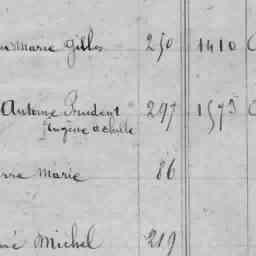 Marie Gilles 250 1410
Antoine Prudent 297 1575
Eugène Achille
Marie 86
Michel 219